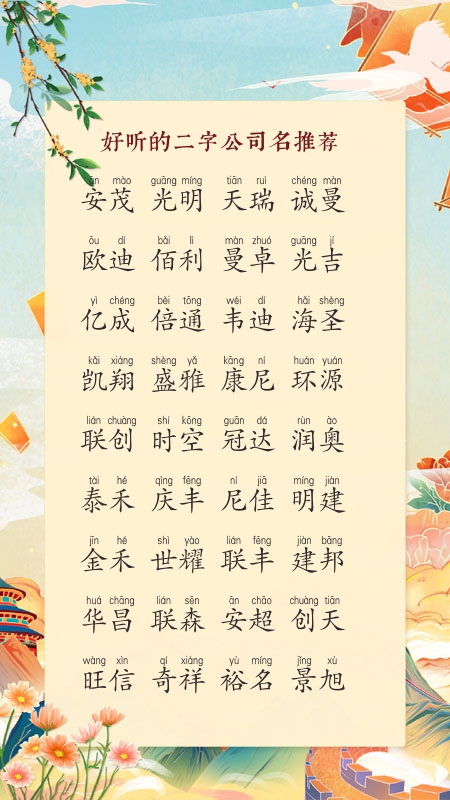 好听的二字公司名推荐
ān mào guāng míng tiān ruì chéng màn
安茂 光明 天瑞 诚曼
ōu dí bǎi lì màn zhuó guāng jí
欧迪 佰利 曼卓 光吉
yì chéng bèi tōng wéi dí hǎi shèng
亿成 倍通 韦迪 海圣
kǎi xiáng shèng yǎ kāng ní huán yuán
凯翔 盛雅 康尼 环源
lián chuàng shí kōng guān dá rùn ào
联创 时空 冠达 润奥
tài hé qìng fēng ní jiā míng jiàn
泰禾 庆丰 尼佳 明建
jīn hé shì yào lián fēng jiàn bāng
金禾 世耀 联丰 建邦
huá chāng lián sēn ān chāo chuàng tiān
华昌 联森 安超 创天
wàng xìn qí xiáng yù míng jǐng xù
旺信 奇祥 裕名 景旭